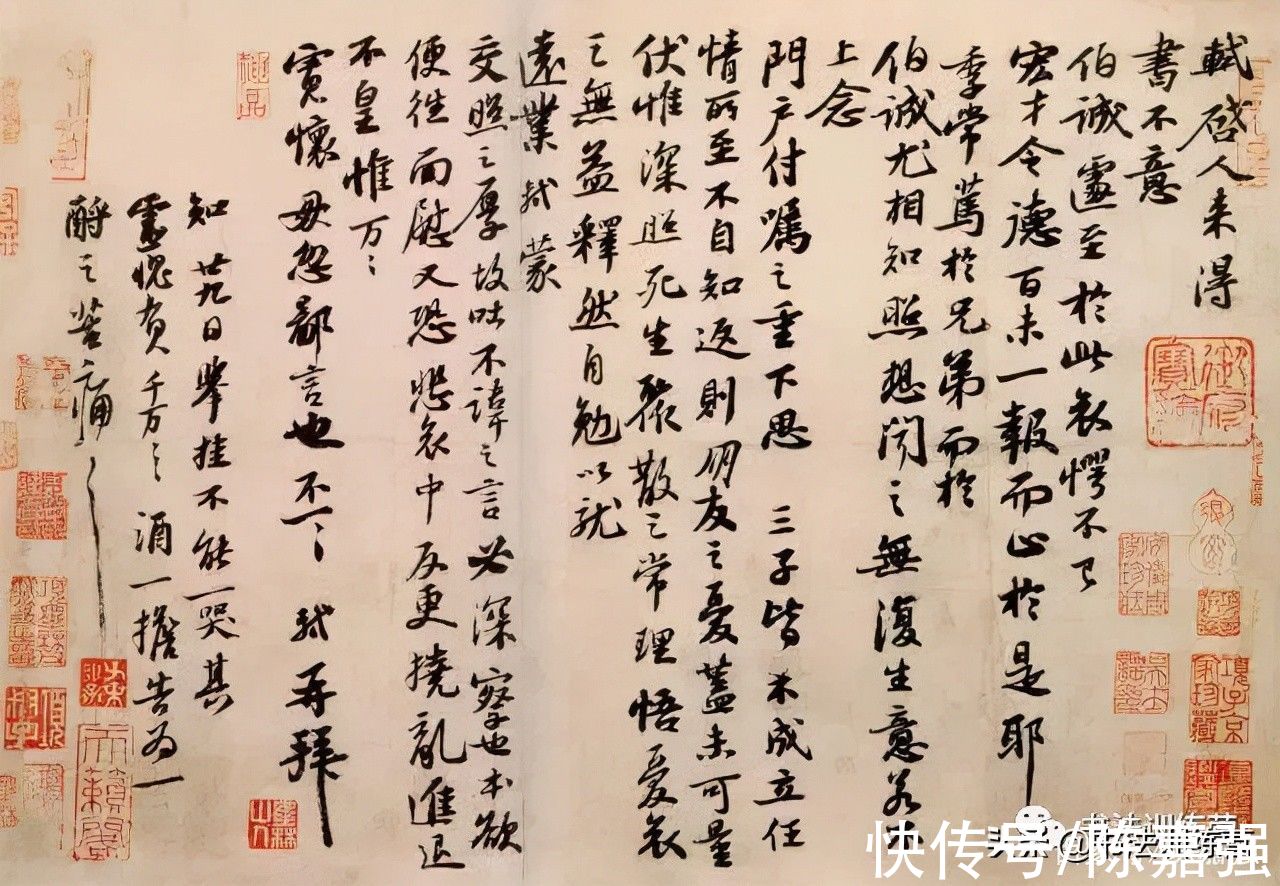 軾啓人来得
書不意
伯誠遽至於此哀愕不已
宏才令德百未一報而止於是耶
季常篤於兄弟而於
伯誠尤相知照想聞之無復生意若不
上念
門户付囑之重下思 三子皆未成立任
情所至不自知返則朋友之憂蓋未可量
伏惟深照死生聚散之常理悟憂哀
之無益釋然自勉以就
遠業軾蒙
交照之厚故吐不諱之言必深察也本欲
便往面慰又恐悲哀中反更撓亂進退
不皇惟万〻
寬懷毋忽鄙言也不一〻 軾再拜
知廿九日舉挂不能一哭其
靈愧負千万〻酒一擔告为一
酹之苦痛〻
快传号/陈嘉强